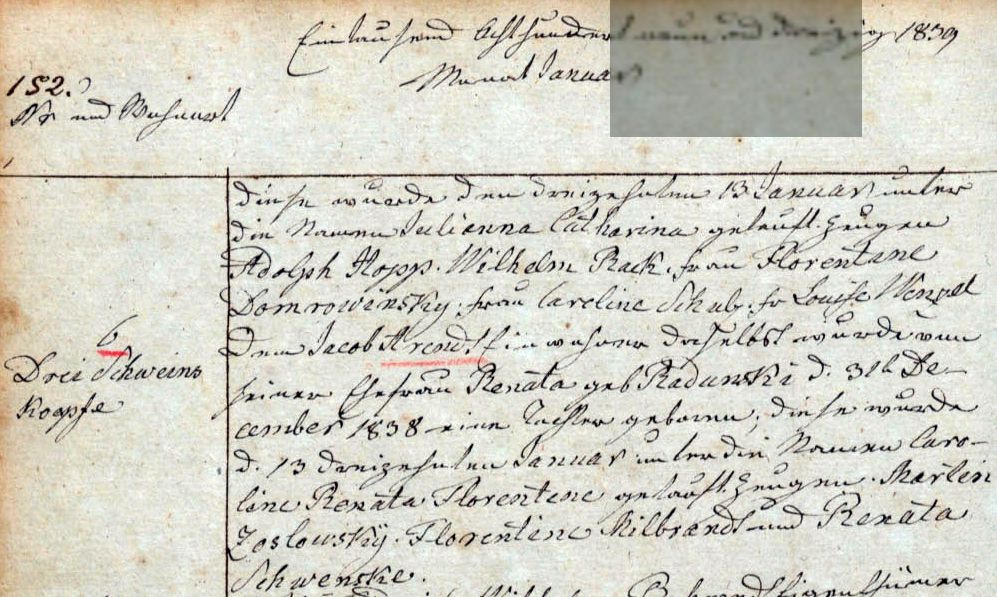 Eintausend Achthundert neun und dreißig 1839
Monat Januar
152.
Nr und Wohnort
diese wurde den dreizehnten 13 Januar unter
die Namen Julianna Catharina getauft. Zeugen
Adolph Hopp. Wilhelm Rack. frau Florentine
Domrowinsky. frau Careline Schulz. fr Louise Wenzel
6
Dem Jacob Arendt Einwohner daselbst wurde von
Drei Schweins
Koepfe
seiner Ehefrau Renata geb Radunski d. 31t De-
cember 1838 eine Tochter geboren, diese wurde
d. 13 dreizehnten Januar unter die Namen Caro-
line Renata Florentene getauft. Zeugen. Martin
Zoslowsky. Florentine Milbrandt und Renata
Schwenske.